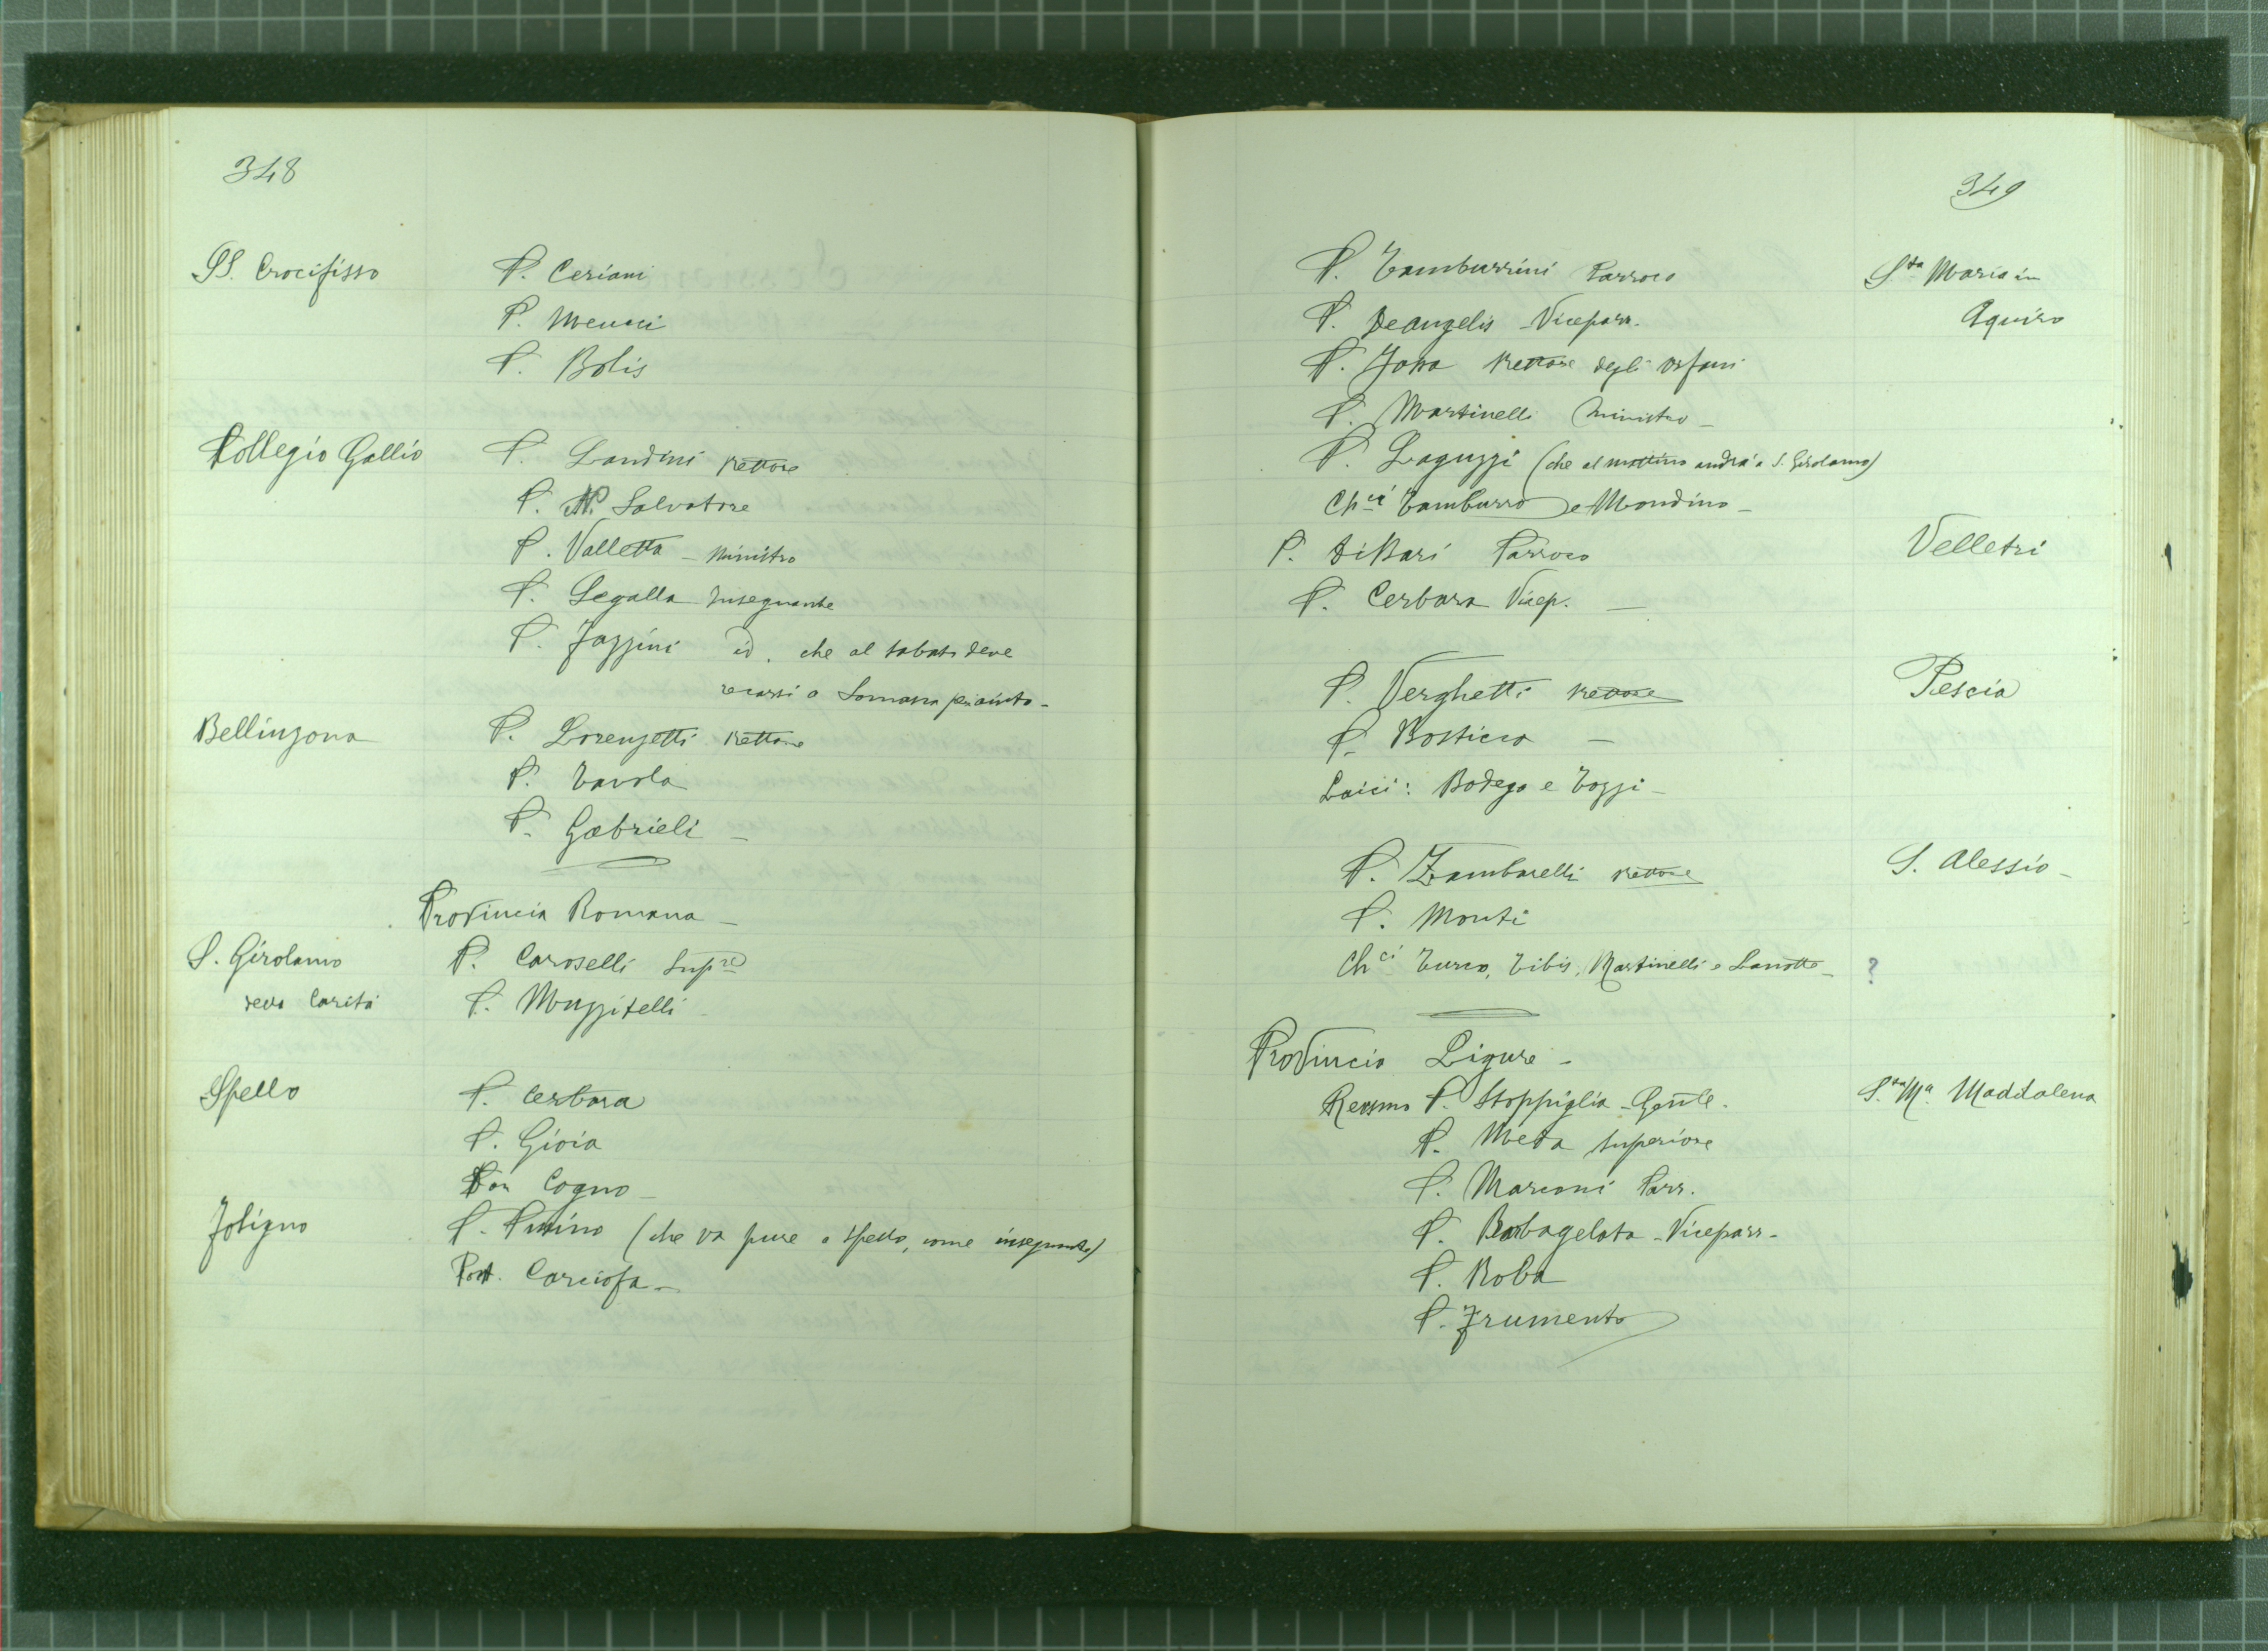 348
SS. Crocifisso P. Ceriani
P. Meucci
P. Bolis
Collegio Gallio P. Landini Rettore
P. N. Salvatore
P. Valletta - Ministro
P. Segalla Insegnante
P. Fazzini id. che al sabato deve
recarsi a Somasca per aiuto -
Bellinzona P. Lorenzetti Rettore
P. Tavola
P. Gabrieli -
Provincia Romana -
S. Girolamo P. Caroselli Sup.re
della Carità P. Muzzitelli
Spello P. Cerbara
P. Gioia
Don Cogno -
Foligno P. Pusino (che va pure a Spello, come insegnante)
Post. Carciofa -
349
P. Tamburrini Parroco S.ta Maria in
P. DeAngelis - Viceparr. Aquiro
P. Jossa Rettore degli orfani
P. Martinelli Ministro -
P. Laguzzi (che al mattino andrà a S. Girolamo)
Ch.ci Tamburro e Mondino -
P. DiBari Parroco Velletri
P. Cerbara Vicep. -
P. Verghetti Rettore Pescia
P. Bosticco -
Laici: Bodega e Tozzi -
P. Zambarelli Rettore S. Alessio -
P. Monti
Ch.ci Turco, Tibis, Martinelli e Lanotte - ?
Provincia Ligure -
Revsmo P. Stoppiglia - Genle. S.ta M.a Maddalena
P. Meda Superiore
P. Marconi Parr.
P. Barbagelata - Viceparr -
P. Roba
P. Frumento